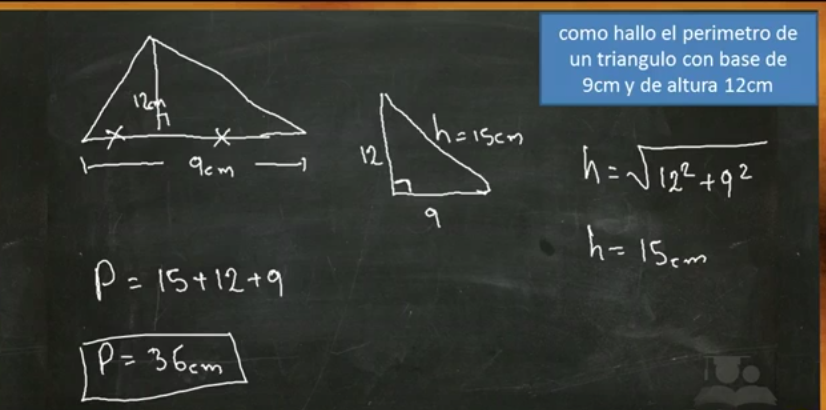 como hallo el perimetro de
un triangulo con base de
9cm y de altura 12cm
12cm
9cm
12
h=15cm
9
h=√12²+9²
h=15cm
P=15+12+9
P=36cm